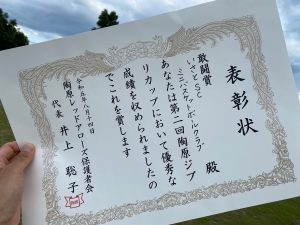 表彰状
敢闘賞
いさとSC
ミニバスケットボールクラブ 殿
あなたは第二回陶原ジブ
リカップにおいて優秀な
成績を収められましたの
でこれを賞します
令和五年八月十四日
陶原レッドアローズ保護者会
代表 井上 聡子